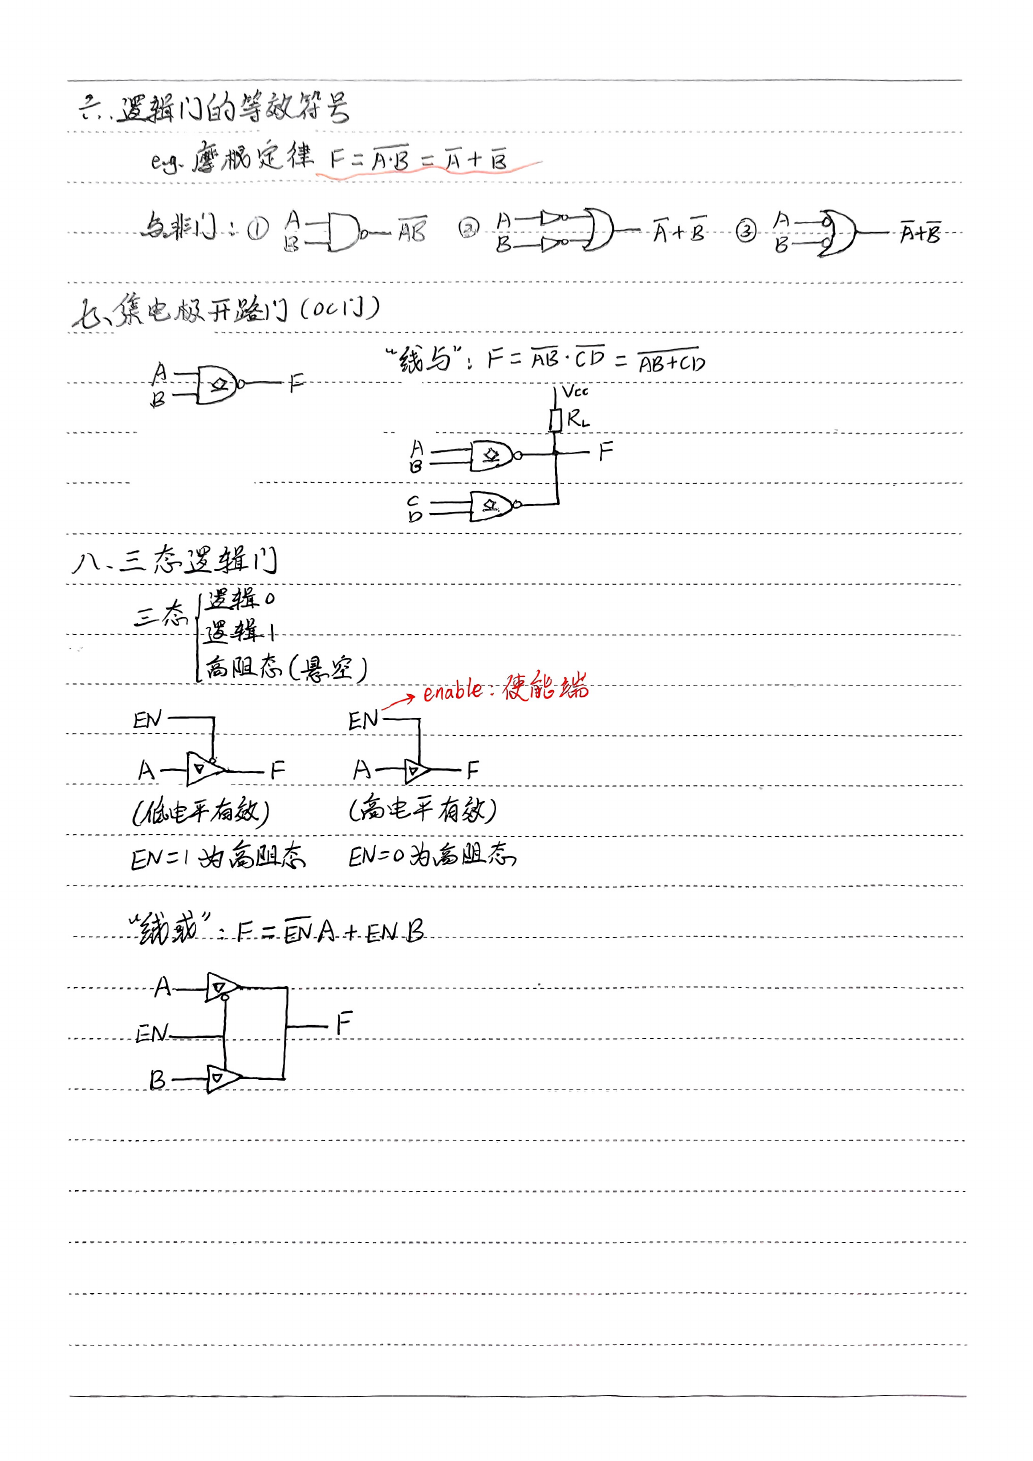 六、逻辑门的等效符号
e.g. 摩根定律 F = \overline{A·B} = \overline{A} + \overline{B}
与非门: ① A B \overline{AB} ② A B \overline{A} + \overline{B} ③ A B \overline{A}+\overline{B}
七、集电极开路门(OC门)
"线与": F = \overline{AB}·\overline{CD} = \overline{AB+CD}
A
B
F
Vcc
RL
A
B
F
C
D
八、三态逻辑门
三态
逻辑0
逻辑1
高阻态(悬空)
enable: 使能端
EN EN
A F A F
(低电平有效) (高电平有效)
EN=1为高阻态 EN=0为高阻态
"线或": F = \overline{EN}A + EN B
A
EN F
B